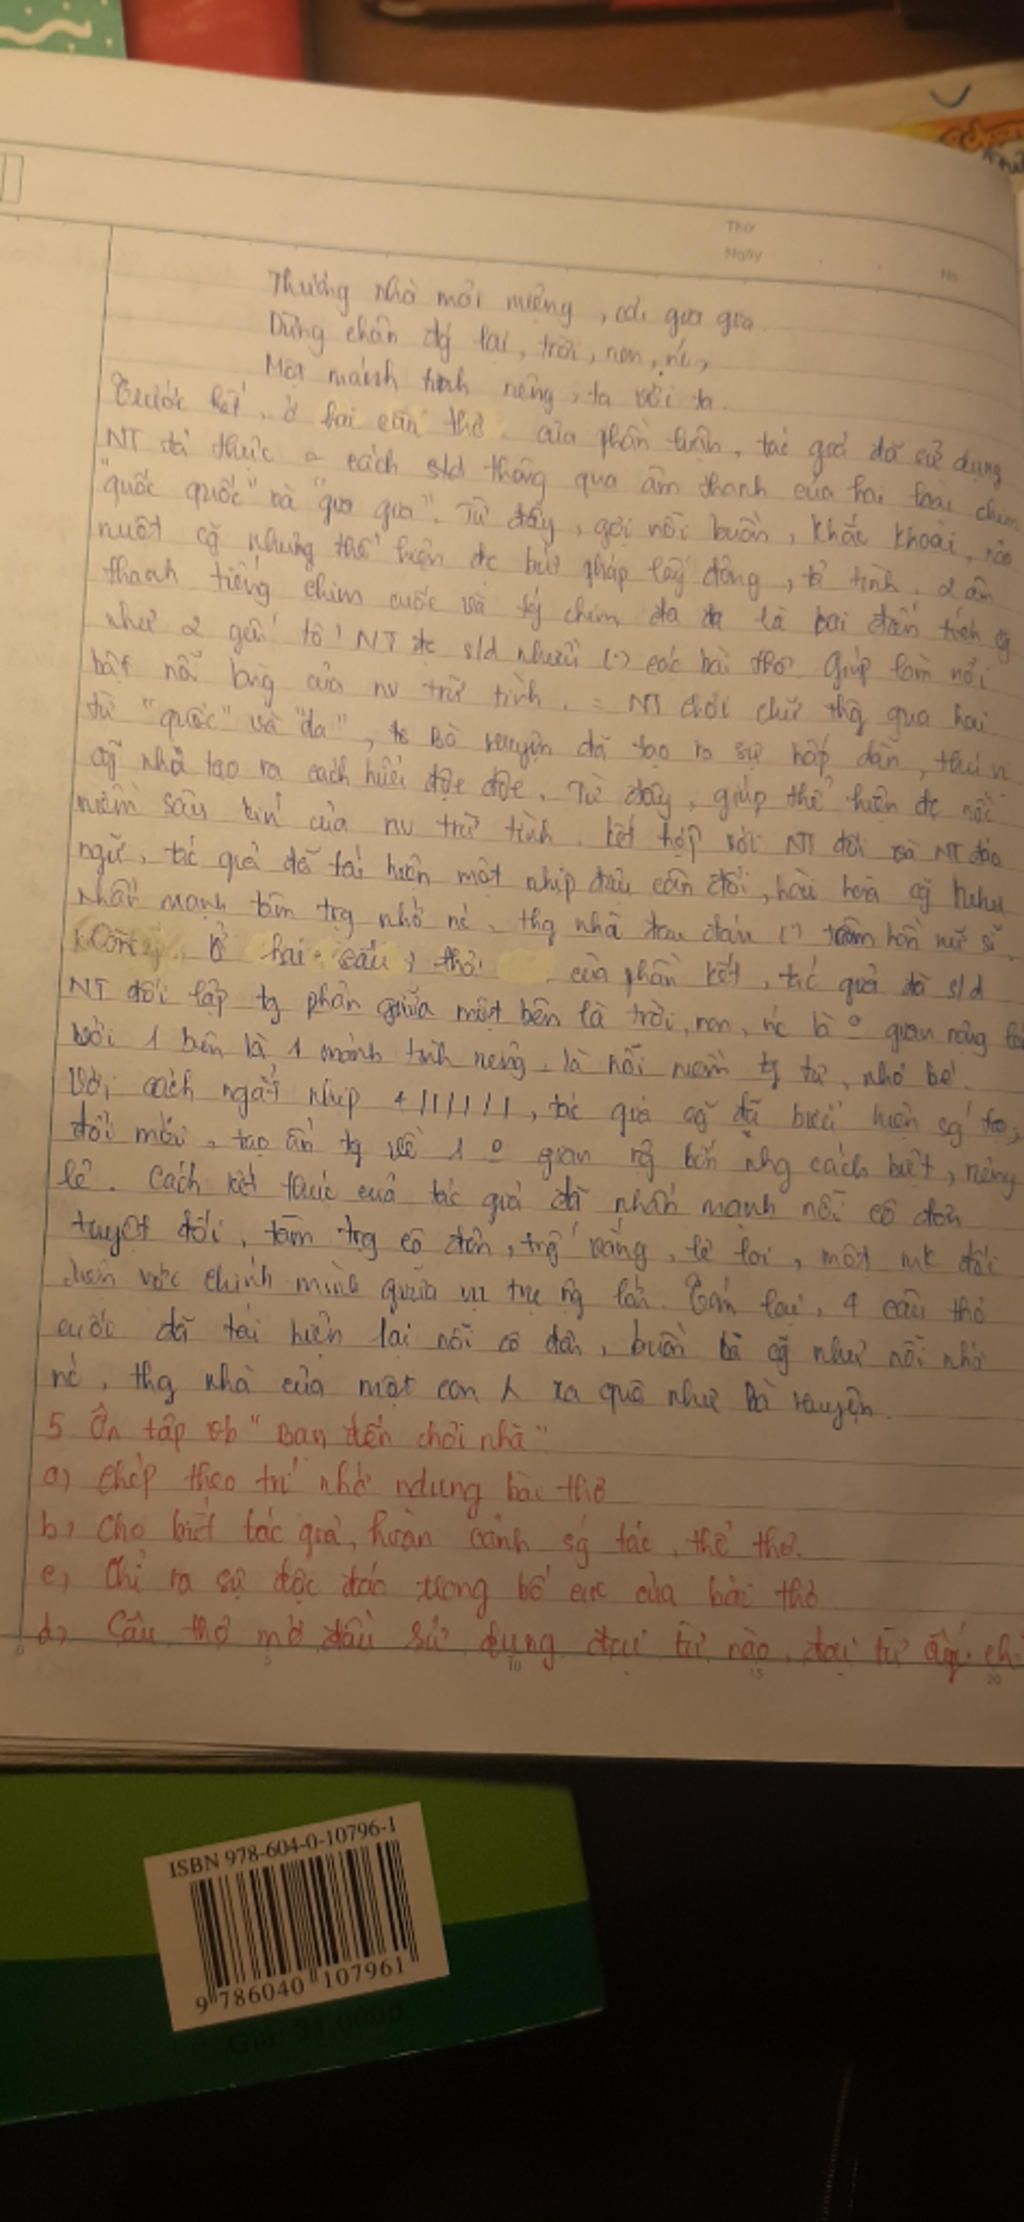 Thứ
Ngày
No
Thương nhà mỏi miệng, cái gia gia.
Dừng chân đý lại, trời, non, nc,
Một mảnh tình riêng, ta với ta.
Trước hết, ở hai câu thơ của phần luận, tác giả đã sử dụng
NT đã thức cách s/d thông qua âm thanh của hai loài chim
"quốc quốc" và "gia gia". Từ đấy, gợi nỗi buồn, khắc khoải, não
nuột cg nhưng thể hiện đc bút pháp lấy động, tả tình. 2 âm
thanh tiếng chim cuốc và tg chim đa đa là hai điển tích cg
như 2 yếu tố NT đc s/d nhiều (-) các bài thơ. Giúp làm nổi
bật nỗi lòng của nv trữ tình. = NT chơi chữ thg qua hai
từ "quốc" và "da", tg Bà Huyện đã tạo ra sự hấp dẫn, thú vị
cg như tạo ra cách hiểu độc đáo. Từ đây, giúp thể hiện đc nỗi
niềm sâu kín của nv trữ tình. Kết hợp với NT đối và NT đảo
ngữ, tác giả đã tái hiện một nhịp điệu cân đối, hài hoà cg như
nhấn mạnh tâm trg nhớ nc, thg nhà đau đáu (-) tâm hồn nữ sĩ.
Còn, ở hai câu thơ của phần kết, tác giả đã s/d
NT đối lập tg phản giữa một bên là trời, non, nc là 0 gian rộng lớn
với 1 bên là 1 mảnh tình riêng, là nỗi niềm tg tư, nhỏ bé.
Với cách ngắt nhịp 4/1/1/1, tác giả cg đã biểu hiện sg tạo,
đổi mới, tạo ấn tg về 1 0 gian rg lớn nhg cách biệt, riêng
lẻ. Cách kết thúc của tác giả đã nhấn mạnh nỗi cô đơn
tuyệt đối, tâm trg cô đơn, trg vắng, lẻ loi, một mk đối
diện với chính mình giữa vũ trụ rg lớn. Tóm lại, 4 câu thơ
cuối đã tái hiện lại nỗi cô đơn, buồn bã cg như nỗi nhớ
nc, thg nhà của một con người xa quê như Bà Huyện.
5 Ôn tập vb "Bạn đến chơi nhà"
a) Chép theo trí nhớ ndung bài thơ
b) Cho biết tác giả, hoàn cảnh sg tác, thể thơ.
c) Chỉ ra sự độc đáo trong bố cục của bài thơ
d) Câu thơ mở đầu sử dụng đại từ nào, đại từ ấy chỉ
0 5 10 15 20
ISBN 978-604-0-10796-1
9 786040 107961